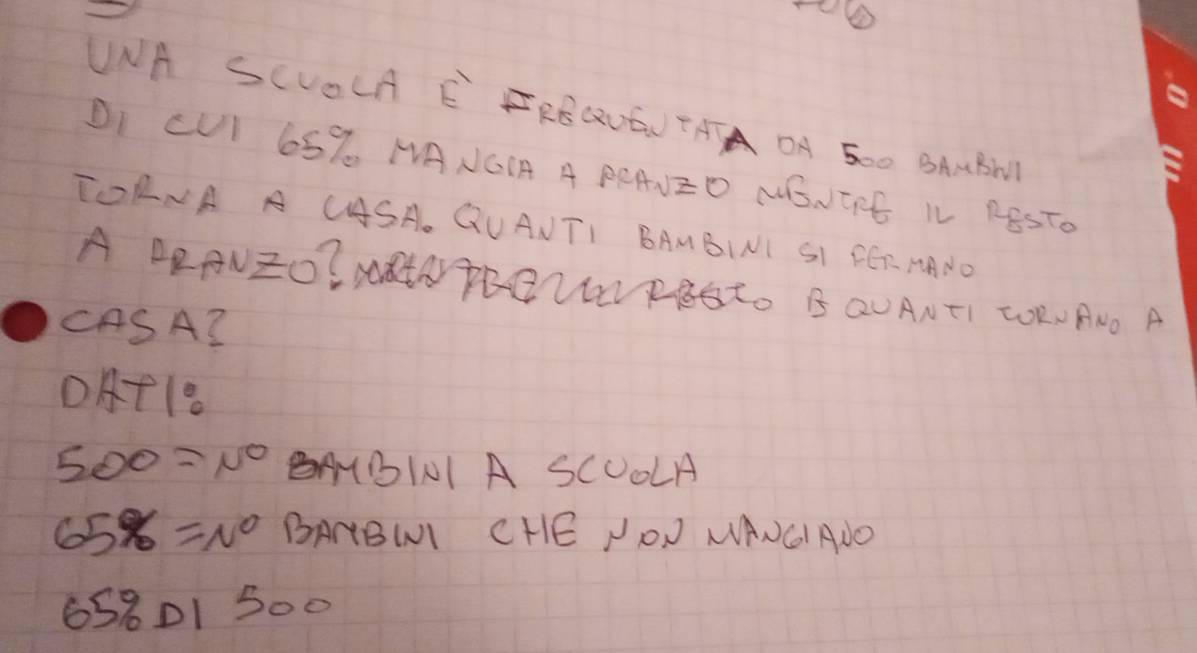 UNA SCUOLA È FREQUENTATA DA 500 BAMBINI
DI CUI 65% MANGIA A PRANZO MENTRE IL RESTO
TORNA A CASA. QUANTI BAMBINI SI FERMANO
A PRANZO? E QUANTI TORNANO A
CASA?
DATI:
500 = N° BAMBINI A SCUOLA
65% = N° BAMBINI CHE NON MANGIANO
65% DI 500